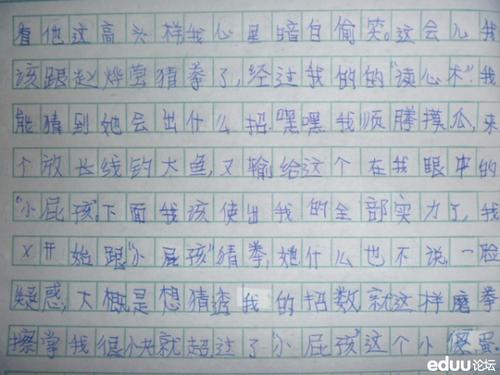 看他这高头样我心里暗自偷笑。这会儿我
该跟赵烨莹猜拳了,经过我的的“读心术”我
能猜到她会出什么招.嘿嘿我顺腾摸瓜,来
个放长线钓大鱼,又输给这个在我眼中的
“小屁孩”下面我该使出我的全部实力了,我
又开始跟“小屁孩”猜拳,她什么也不说,一脸
疑惑,大概是想猜透我的招数就这样磨拳
擦掌我很小快就超过了“小屁孩”这个小傻蛋.
eduu论坛